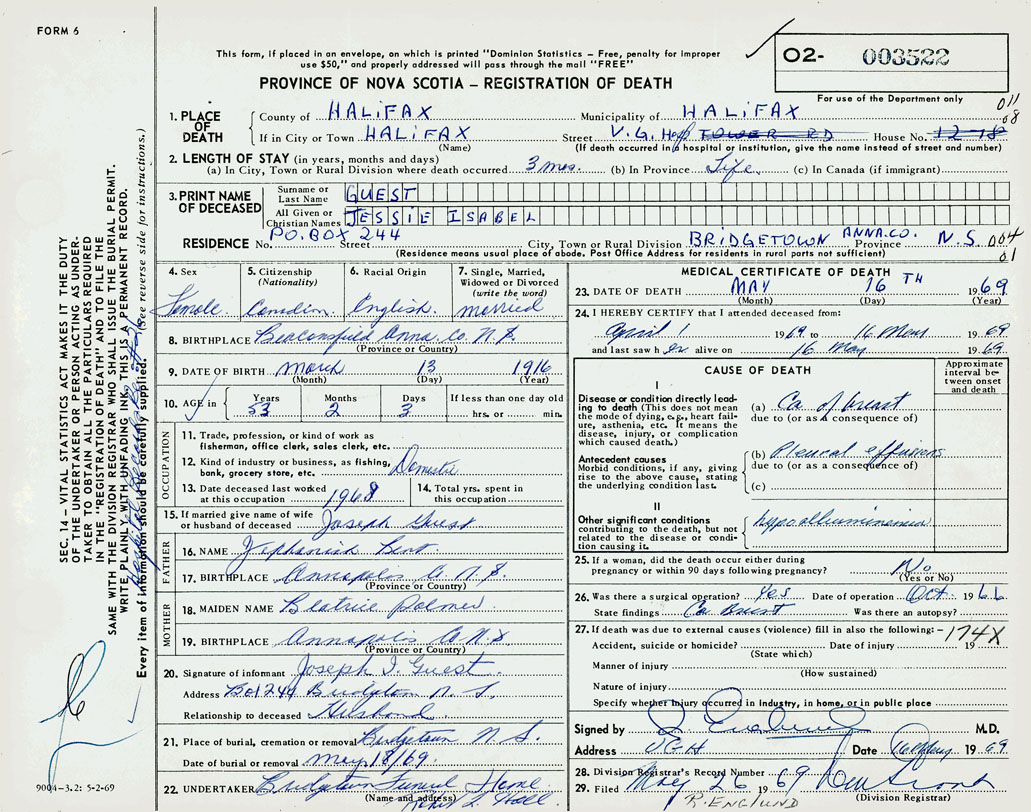 FORM 6
This form, if placed in an envelope, on which is printed "Dominion Statistics – Free, penalty for improper
use $50," and properly addressed will pass through the mail "FREE"
PROVINCE OF NOVA SCOTIA – REGISTRATION OF DEATH
02- 003522
For use of the Department only
011
08
1. PLACE OF DEATH
County of HALIFAX Municipality of HALIFAX
If in City or Town HALIFAX Street V.G. Hosp TOWER RD House No. 12-18
(Name) (If death occurred in hospital or institution, give the name instead of street and number)
2. LENGTH OF STAY (in years, months and days)
(a) In City, Town or Rural Division where death occurred 3 mos. (b) In Province Life (c) In Canada (if immigrant)
3. PRINT NAME OF DECEASED
Surname or Last Name GUEST
All Given or Christian Names JESSIE ISABEL
RESIDENCE No. P.O. BOX 244 Street City, Town or Rural Division BRIDGETOWN ANNA.CO. Province N.S. 004
(Residence means usual place of abode. Post Office Address for residents in rural parts not sufficient) 01
4. Sex Female
5. Citizenship (Nationality) Canadian
6. Racial Origin English
7. Single, Married, Widowed or Divorced (write the word) married
8. BIRTHPLACE Beaconsfield Anna. Co. N.S.
(Province or Country)
9. DATE OF BIRTH March 13 1916
(Month) (Day) (Year)
10. AGE in Years Months Days If less than one day old
53 2 3 hrs. or min.
OCCUPATION
11. Trade, profession, or kind of work as
fisherman, office clerk, sales clerk, etc.
12. Kind of industry or business, as fishing,
bank, grocery store, etc. Domestic
13. Date deceased last worked
at this occupation 1968
14. Total yrs. spent in
this occupation
15. If married give name of wife
or husband of deceased Joseph Guest
FATHER
16. NAME Zephaniah Bent
17. BIRTHPLACE Annapolis Co. N.S.
(Province or Country)
MOTHER
18. MAIDEN NAME Beatrice Palmer
19. BIRTHPLACE Annapolis Co N.S
(Province or Country)
20. Signature of informant Joseph I. Guest
Address Box 244 Bridgetown N. S.
Relationship to deceased Husband
21. Place of burial, cremation or removal Bridgetown N.S.
Date of burial or removal May 18/69
22. UNDERTAKER Bridgetown Funeral Home
(Name and address)
MEDICAL CERTIFICATE OF DEATH
23. DATE OF DEATH MAY 16 TH 1969
(Month) (Day) (Year)
24. I HEREBY CERTIFY that I attended deceased from:
April 1 1969 to 16 May 1969
and last saw her alive on 16 May 1969
CAUSE OF DEATH
Approximate interval between onset and death
I
Disease or condition directly leading
to death (This does not mean
the mode of dying, e.g., heart failure,
asthenia, etc. It means the
disease, injury, or complication
which caused death.)
(a) Ca of breast
due to (or as a consequence of)
Antecedent causes
Morbid conditions, if any, giving
rise to the above cause, stating
the underlying condition last.
(b) Pleural effusions
due to (or as a consequence of)
(c)
II
Other significant conditions
contributing to the death, but not
related to the disease or condition
causing it. hypoalbuminemia
25. If a woman, did the death occur either during
pregnancy or within 90 days following pregnancy? No
(Yes or No)
26. Was there a surgical operation? Yes Date of operation Oct. 1966
State findings Ca breast Was there an autopsy?
27. If death was due to external causes (violence) fill in also the following:- 174X
Accident, suicide or homicide? Date of injury 19
(State which)
Manner of injury
(How sustained)
Nature of injury
Specify whether injury occurred in industry, in home, or in public place
Signed by M.D.
Address VGH Date 16 May 1969
28. Division Registrar's Record Number
29. Filed May 26 1969
Division Registrar
R. ENGLUND
SEC. 14 – VITAL STATISTICS ACT MAKES IT THE DUTY
OF THE UNDERTAKER OR PERSON ACTING AS UNDER-
TAKER TO OBTAIN ALL THE PARTICULARS REQUIRED
IN THE "REGISTRATION OF DEATH" AND TO FILE THE
SAME WITH THE DIVISION REGISTRAR WHO SHALL ISSUE THE BURIAL PERMIT.
WRITE PLAINLY WITH UNFADING INK, THIS IS A PERMANENT RECORD.
Every item of information should be carefully supplied. (See reverse side for instructions.)
9004-3.2: 5-2-69